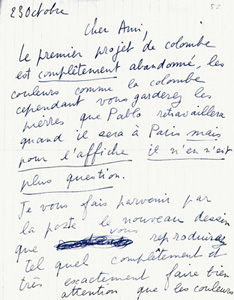 23 Octobre
50
Cher Ami,
Le premier projet de colombe
est complètement abandonné, les
couleurs comme la colombe
cependant vous garderez les
pierres que Pablo retravaillera
quand il sera à Paris mais
pour l'affiche il n'en n'est
plus question.
Je vous fais parvenir par
la poste le nouveau dessin
que vous reproduirez
tel quel complètement et
très exactement faire très
attention que les couleurs